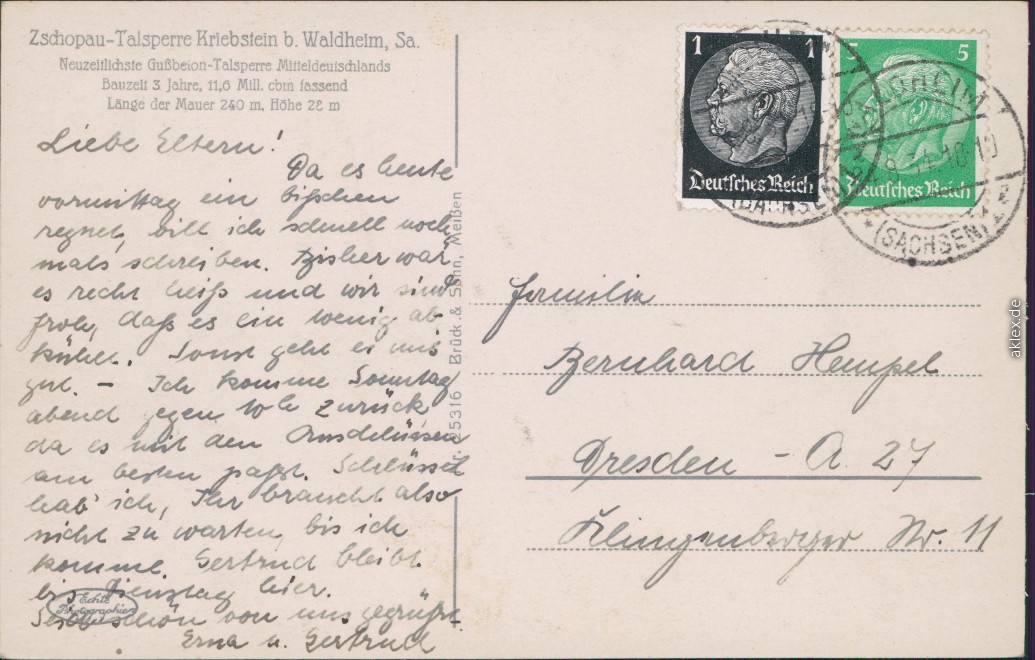 Zschopau-Talsperre Kriebstein b. Waldheim, Sa.
Neuzeitlichste Gußbeton-Talsperre Mitteldeutschlands
Bauzeit 3 Jahre, 11,6 Mill. cbm fassend
Länge der Mauer 240 m. Höhe 28 m
Liebe Eltern!
Da es heute
vormittag ein bißchen
regnet, will ich schnell noch
mals schreiben. Bisher war
es recht heiß und wir sind
froh, daß es ein wenig ab-
kühlt. Sonst geht es uns
gut. – Ich komme Sonntag
abend gegen 10 h zurück
da es mit den Anschlüssen
am besten paßt. Schlüssel
hab' ich, Ihr braucht also
nicht zu warten, bis ich
komme. Gertrud bleibt
bis Dienstag hier.
Seid schön von uns gegrüßt
Erna u. Gertrud
Echte
Photographie
Nr. 25316 Brück & Sohn, Meißen
1 1
Deutsches Reich
5 5
Deutsches Reich
(SACHSEN)
(SACHSEN)
Familie
Bernhard Hempel
Dresden - A. 27
Klingenberger Str. 11
aklex.de